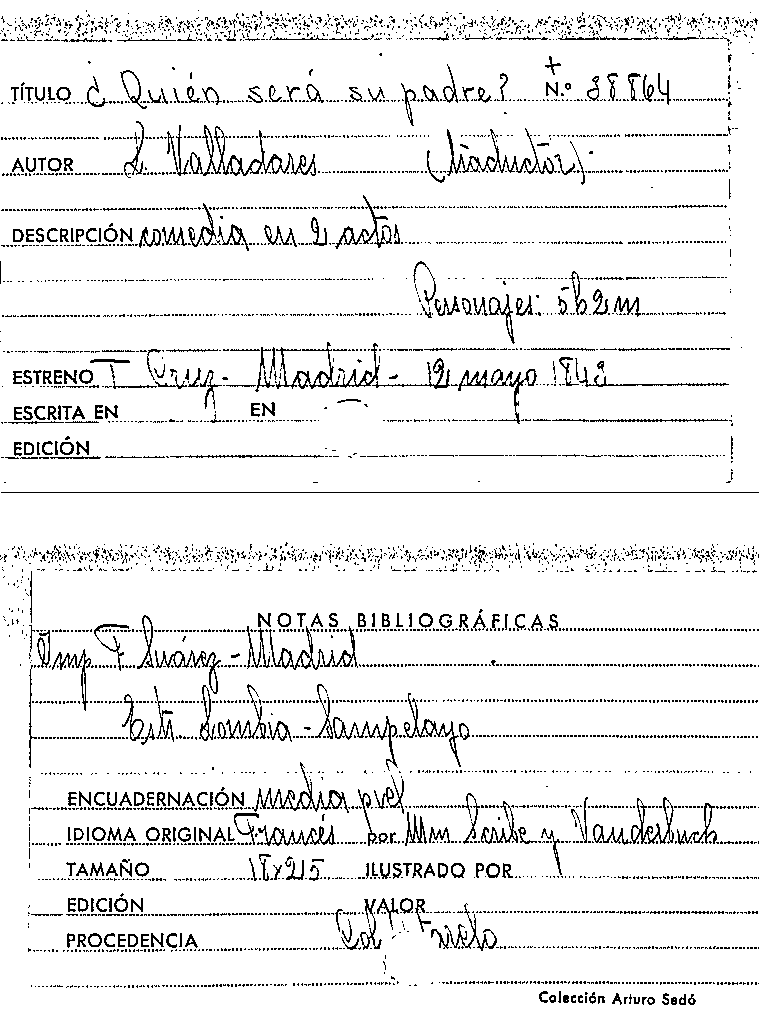 TÍTULO ¿Quién será su padre? + N.º 38864
AUTOR L. Valladares (Traductor).
DESCRIPCIÓN comedia en 2 actos
Personajes: 5h 2m
ESTRENO T Cruz - Madrid - 12 mayo 1843
ESCRITA EN EN
EDICIÓN
NOTAS BIBLIOGRÁFICAS
Imp F Suárez - Madrid
Estr. Lombia - Sampelayo
ENCUADERNACIÓN media piel
IDIOMA ORIGINAL Francés por Mm Scribe y Vanderburch
TAMAÑO 18x215 ILUSTRADO POR
EDICIÓN VALOR
PROCEDENCIA Col
Colección Arturo Sedó